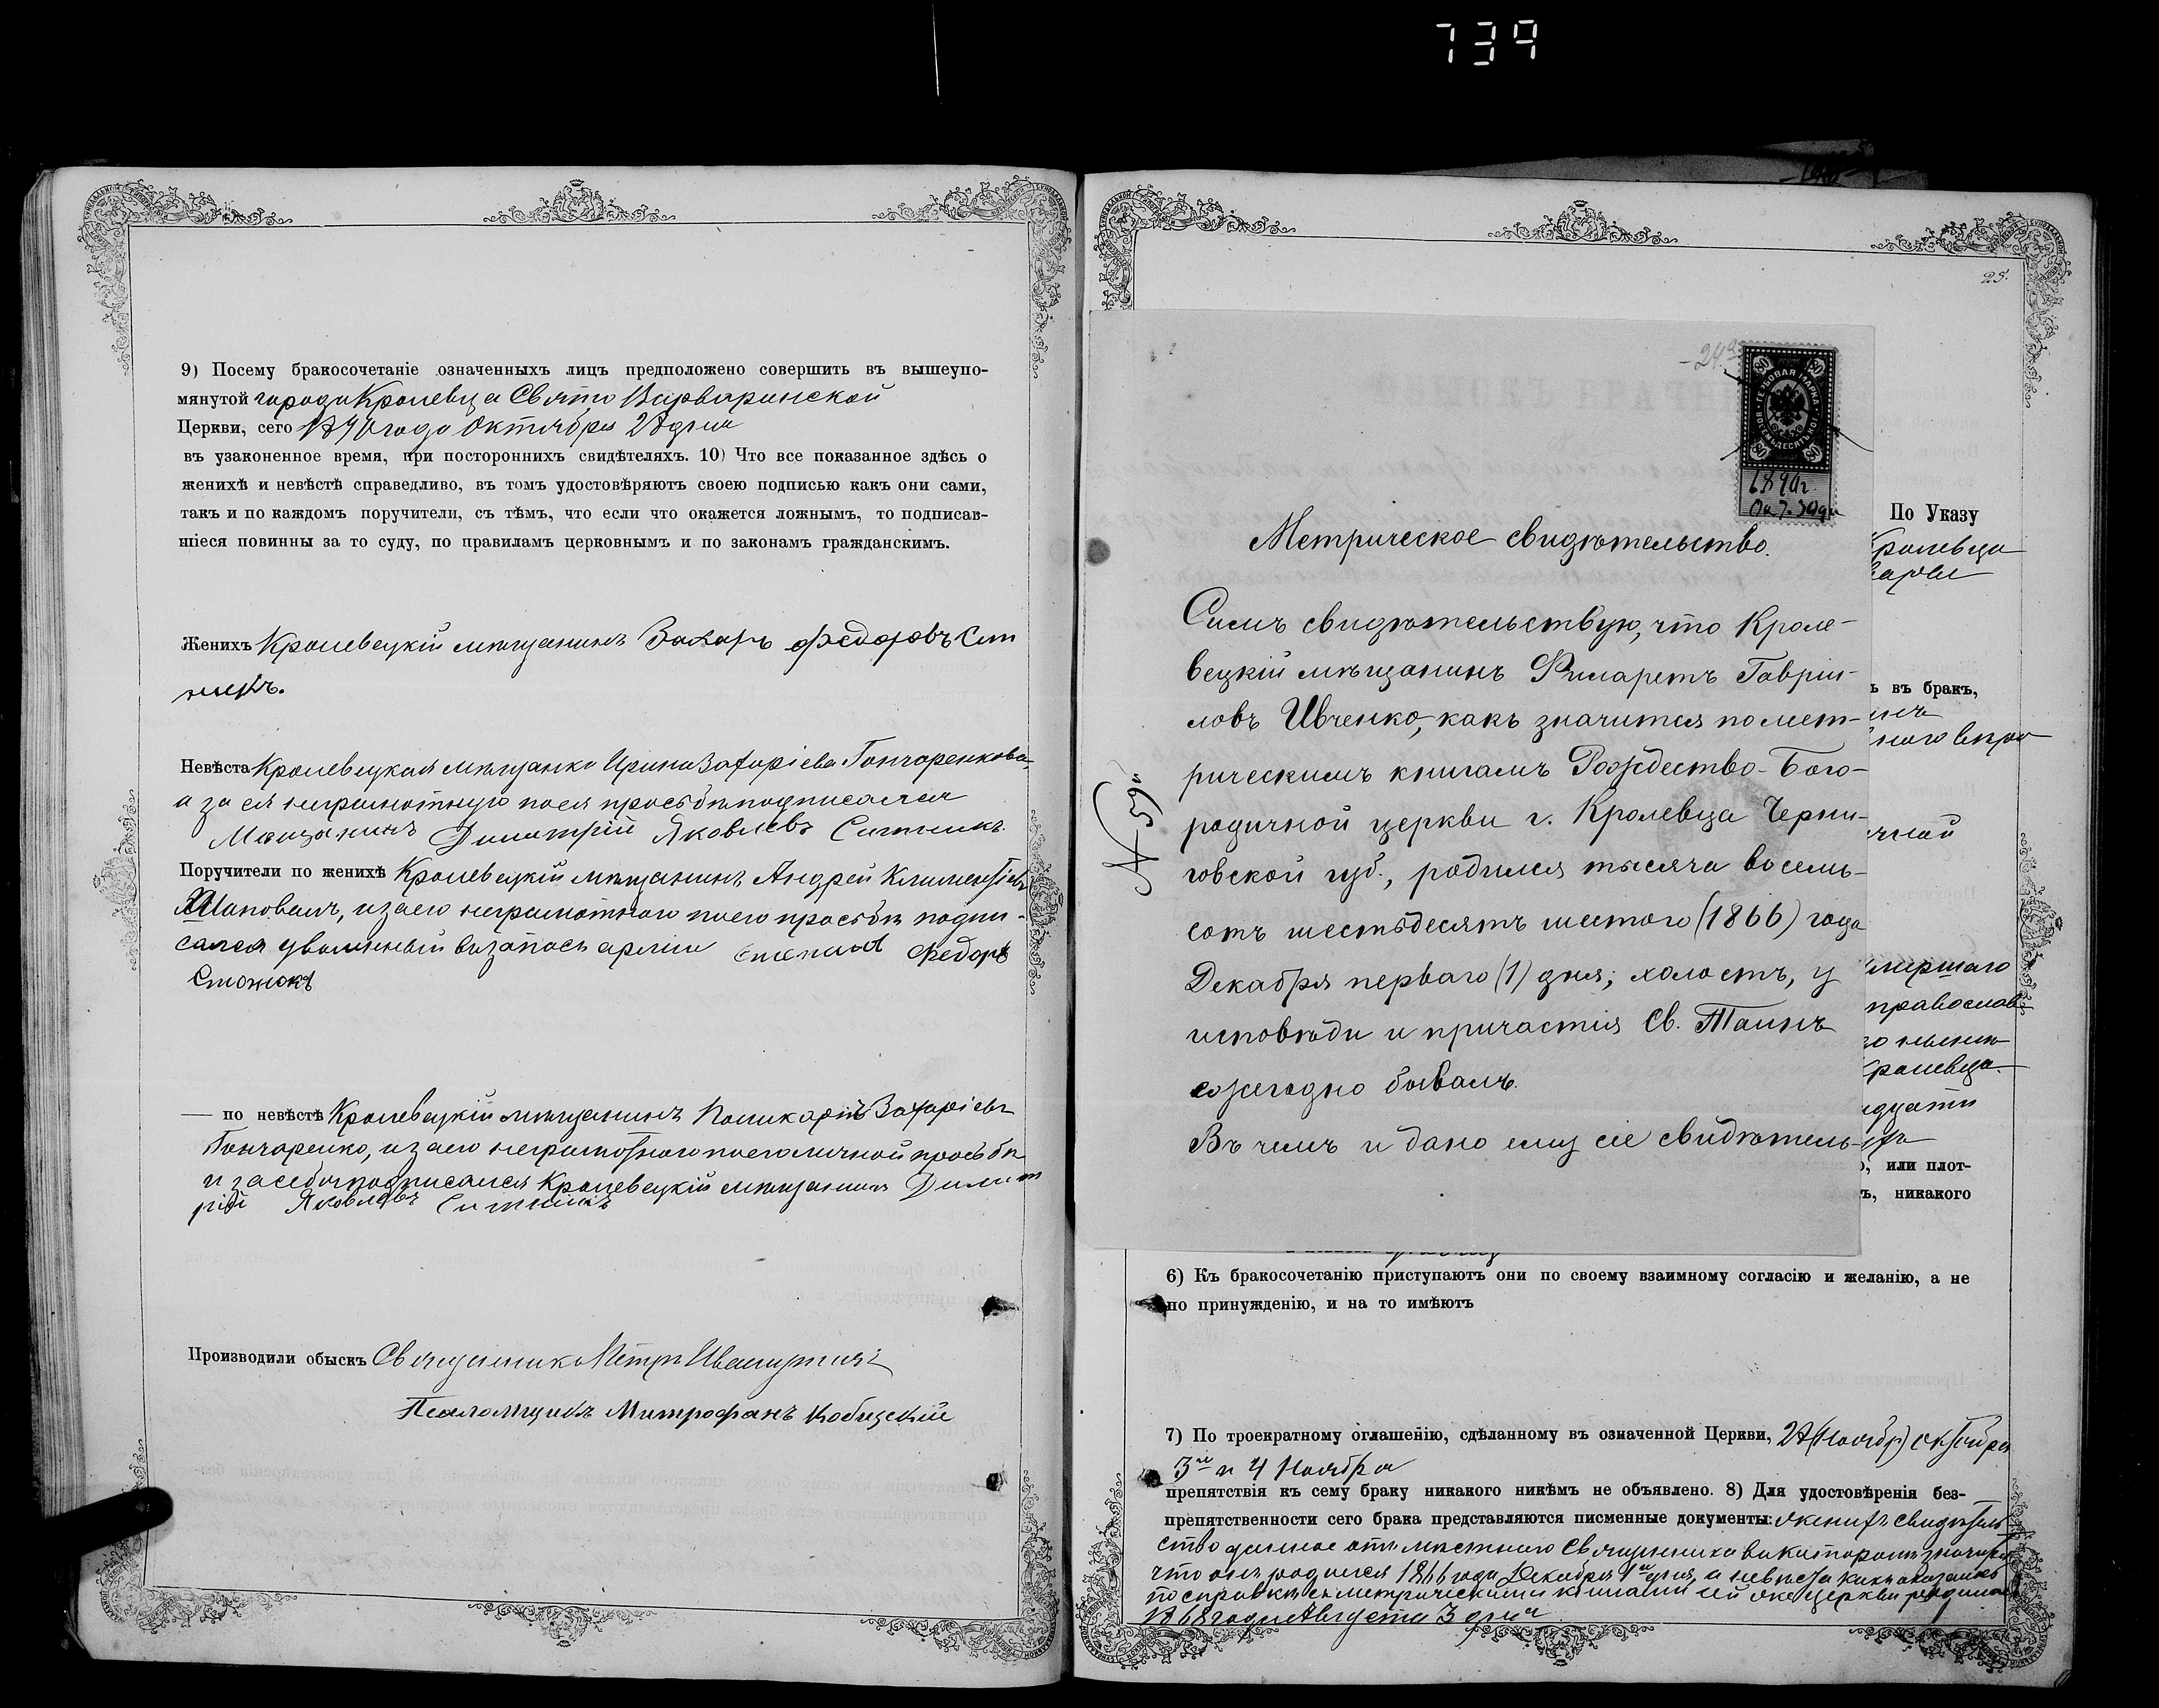 739
9) Посему бракосочетаніе означенныхъ лицъ предположено совершить въ вышеупо-
мянутой города Кролевца Свято Варваринской
Церкви, сего 1890 года Октября 28 дня
въ узаконенное время, при постороннихъ свидѣтеляхъ. 10) Что все показанное здѣсь о
женихѣ и невѣстѣ справедливо, въ томъ удостовѣряютъ своею подписью какъ они сами,
такъ и по каждомъ поручители, съ тѣмъ, что если что окажется ложнымъ, то подписав-
шіеся повинны за то суду, по правиламъ церковнымъ и по законамъ гражданскимъ.
Женихъ Кролевецкій мѣщанинъ Захаръ Федоровъ Сит
никъ.
Невѣста Кролевецкая мѣщанка Ирина Захаріева Гончаренкова,
а за ея неграмотную по ея просьбѣ подписался
Мещанинъ Димитрій Яковлевъ Ситникъ.
Поручители по женихѣ Кролевецкій мѣщанинъ Андрей Климентіевъ
Шаповалъ, а за его неграмотнаго по его просьбѣ подпи-
сался уволенный въ запасъ арміи Федоръ
— по невѣстѣ Кролевецкій мѣщанинъ Поликарпъ Захаріевъ
Гончаренко, а за его неграмотнаго по его личной просьбѣ
и за себя подписался Кролевецкій мѣщанинъ Димит
рій Яковлевъ Ситникъ
Производили обыскъ Священникъ Петръ
Псаломщикъ Митрофанъ Кобищскій
25.
ГЕРБОВАЯ МАРКА
ВОСЕМЬДЕСЯТЪ КОП.
80
1890 г.
Окт. 30 дня
Метрическое свидѣтельство.
№ 59
Симъ свидѣтельствую, что Кроле-
вецкій мѣщанинъ Филаретъ Гавріи-
ловъ Ивченко, какъ значится по мет-
рическимъ книгамъ Рождество-Бого-
родичной церкви г. Кролевца Черни-
говской губ., родился тысяча восемь-
сотъ шестьдесятъ шестого (1866) года
Декабря перваго (1) дня; холостъ, у
исповѣди и причастія Св. Таинъ
ежегодно бывалъ.
Въ чемъ и дано ему сіе свидѣтель-
По Указу
Кролевца
ь въ бракъ,
чной
умершаго
православ
Кролевца
, или плот-
ъ, никакого
6) Къ бракосочетанію приступаютъ они по своему взаимному согласію и желанію, а не
по принужденію, и на то имѣютъ
7) По троекратному оглашенію, сдѣланному въ означенной Церкви, 28 (Ноябр) Октября
3го и 4 Ноября
препятствія къ сему браку никакого никѣмъ не объявлено. 8) Для удостовѣренія без-
препятственности сего брака представляются писменные документы: жениха свидѣтель
ство данное отъ мѣстнаго Священника въ которомъ значится
что онъ родился 1866 года Декабря 1го дня, а невѣста какъ оказалось
по справкѣ съ метрическими книгами сей же церкви родилась
1868 года Августа 3 дня